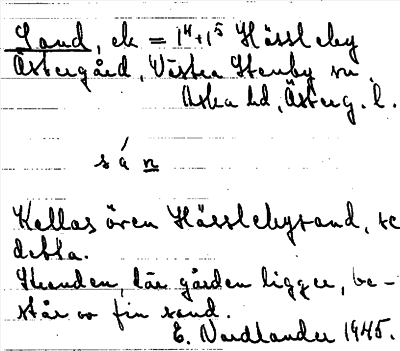 Sand, ek = 1⁴+1⁵ Hässleby
Östergård, Västra Stenby sn.
Aska hd, Österg. l.
sán
Kallas även Hässlebysand, se
detta.
Stranden, där gården ligger, be-
står av fin sand.
E. Nordlander 1945.